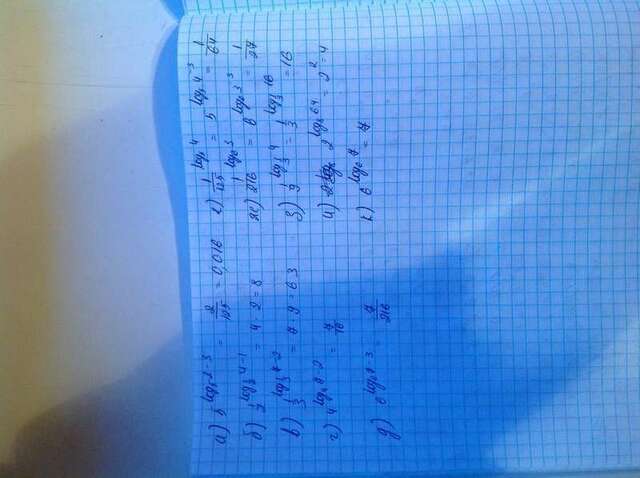 а) 5^{log₅2-3} = 2/125 = 0,016
б) 1/2^{log_{1/2}4-1} = 4·2=8
в) 1/3^{log_{1/3}7-2} = 7·9=63
г) 4^{log₄7-2} = 7/16
д) 6^{log₆7-3} = 7/216
е) 1/125^{log₅4} = 5^{log₅4^{-3}} = 1/64
ж) 1/216^{log₆3} = 6^{log₆3^{-3}} = 1/27
з) 1/9^{log_{1/3}4} = 1/3^{log_{1/3}16} = 16
и) 2^{log₈64} = 2² = 4
к) 6^{log₆7} = 7